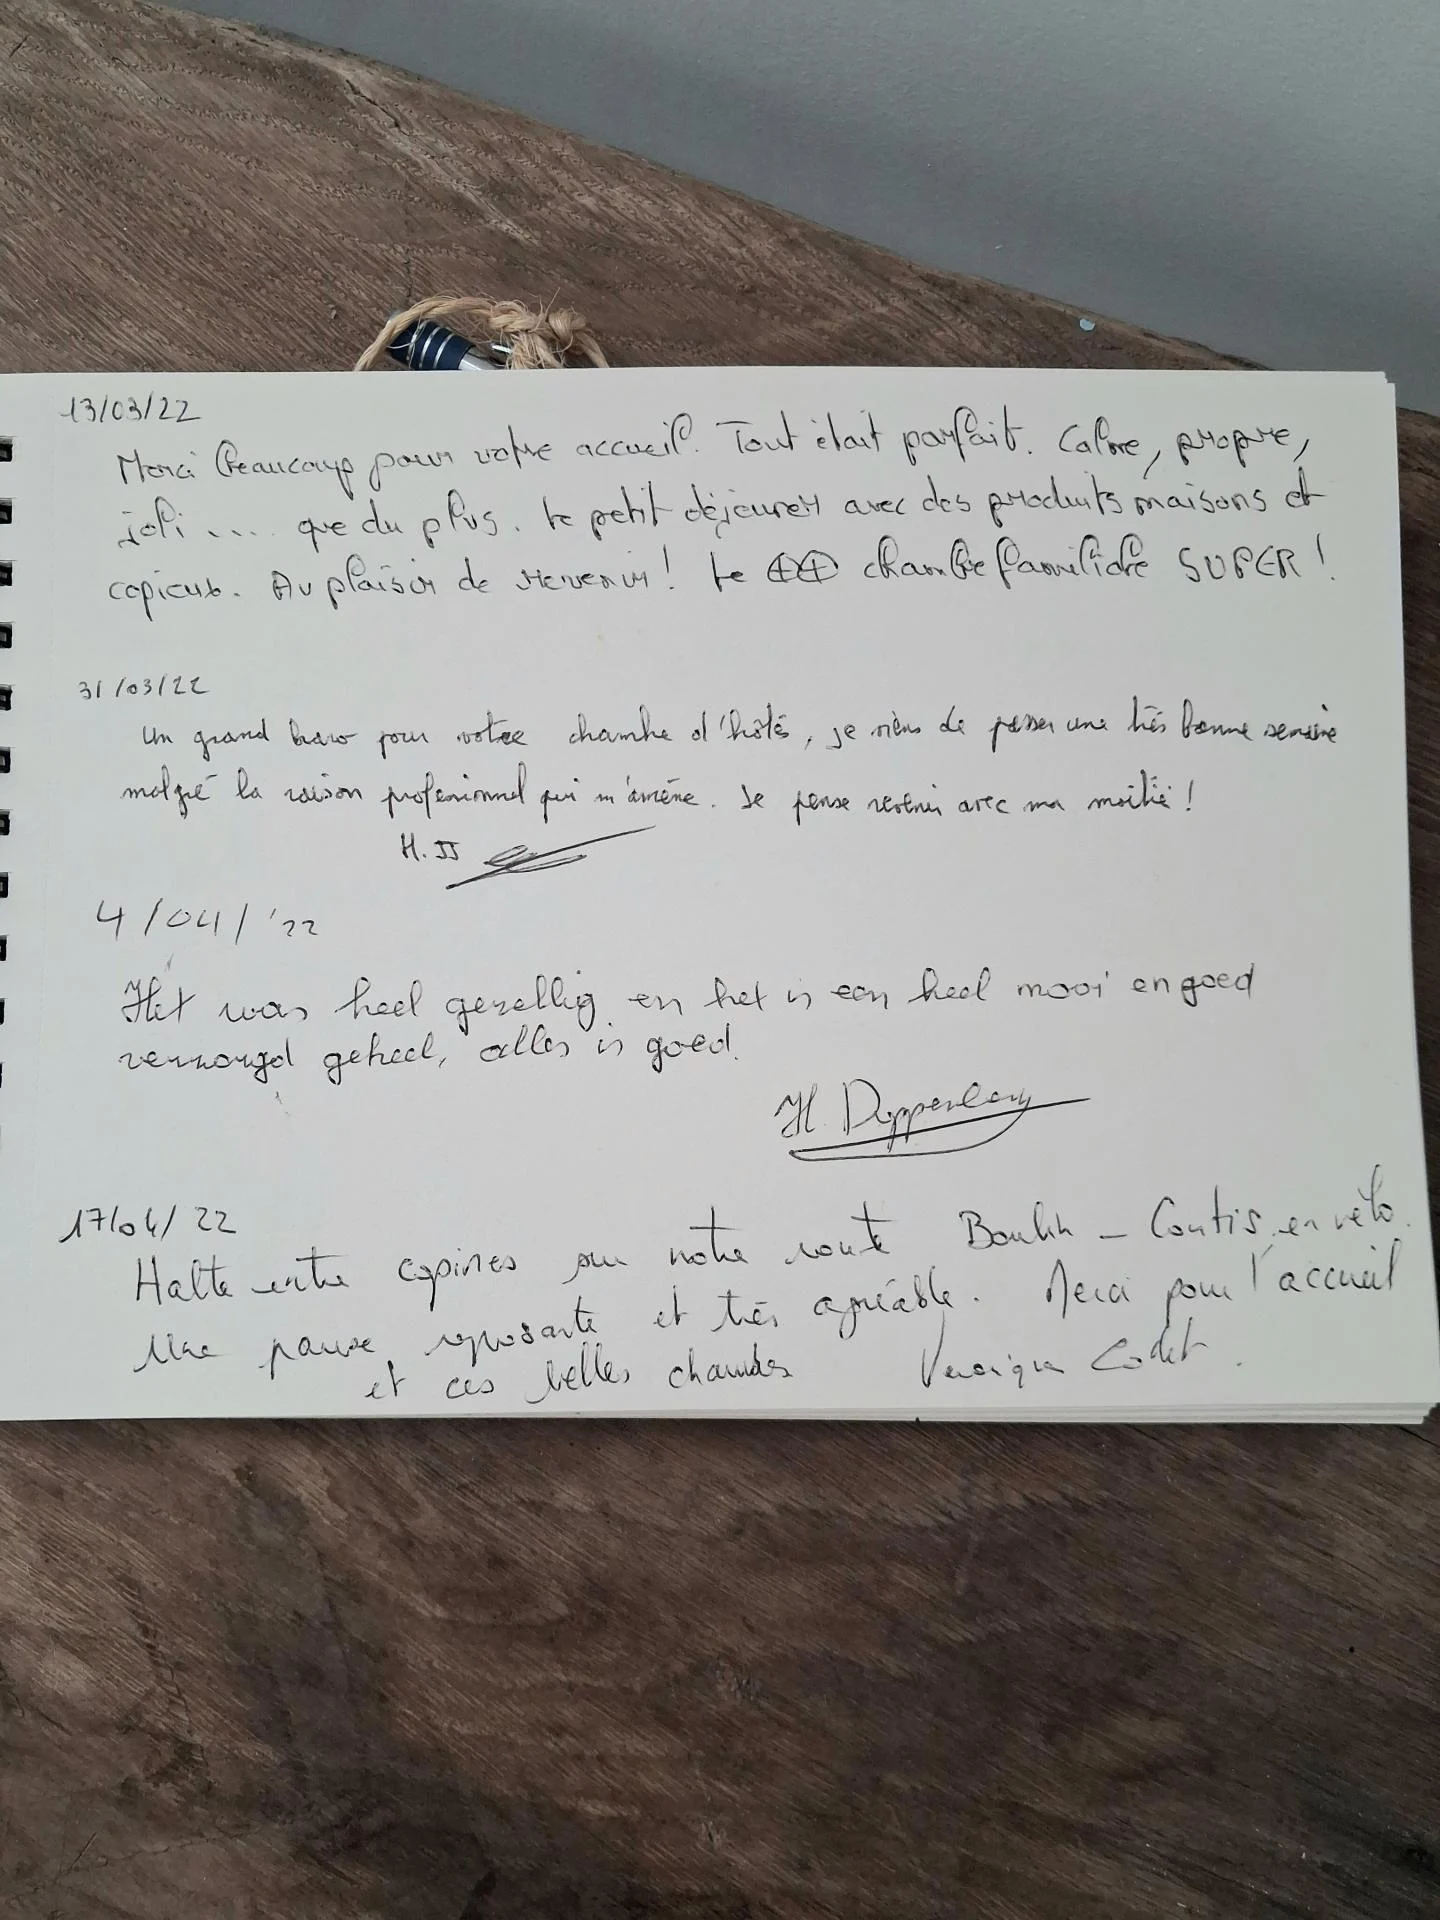 13/03/22
Merci beaucoup pour votre accueil. Tout était parfait. Calme, propre,
joli .... que du plus. Le petit déjeuner avec des produits maisons et
copieux. Au plaisir de revenir! Le ⊕⊕ chambre familiale SUPER!
31/03/22
Un grand bravo pour votre chambre d'hôtes, je viens de passer une très bonne semaine
malgré la raison professionnel qui m'amène. Je pense revenir avec ma moitié!
H.JJ
4/04/'22
Het was heel gezellig en het is een heel mooi en goed
verzorgd geheel, alles is goed.
H.
17/04/22
Halte entre copines sur notre route - Contis en vélo.
Une pause reposante et très agréable. Merci pour l'accueil
et ces belles chambres Veronique